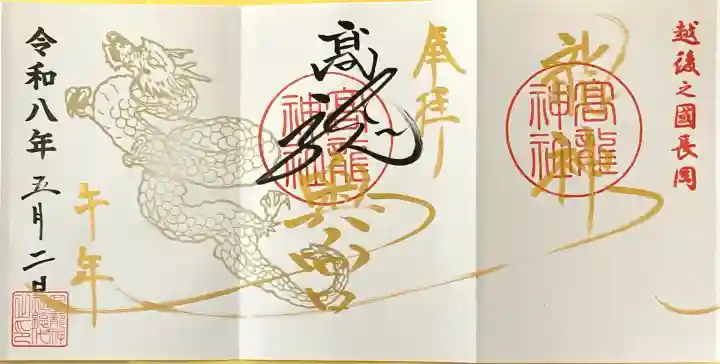 越後之國長岡
龍神
髙龍神社
奉拝
髙龍
髙龍神社
奥宮
令和八年五月二日
午年